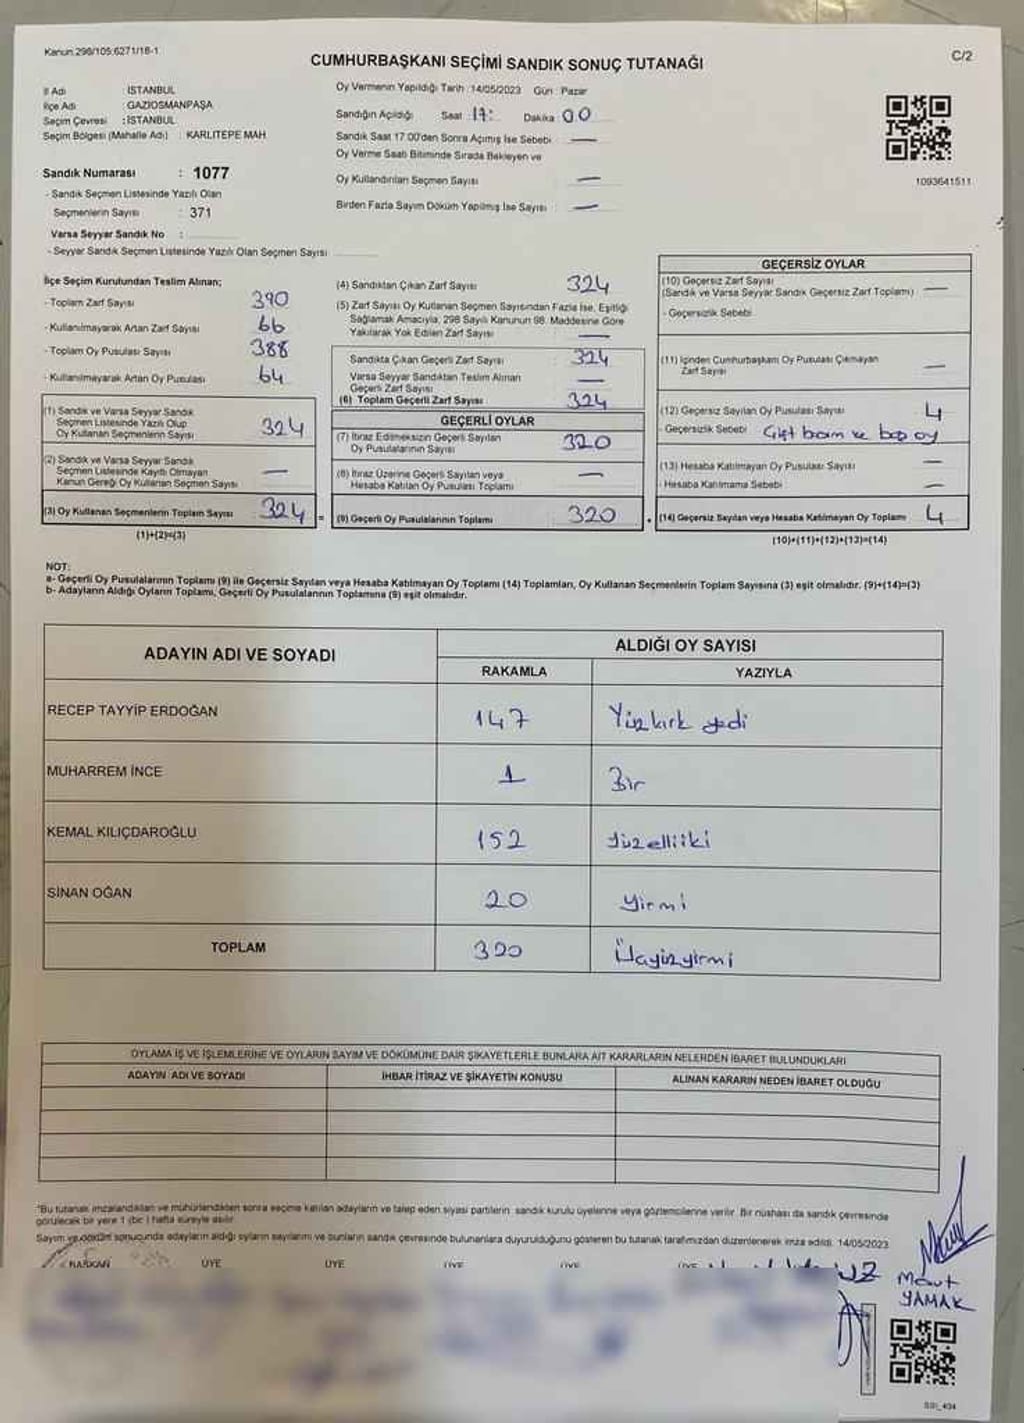 Kanun:298/105:6271/18-1
CUMHURBAŞKANI SEÇİMİ SANDIK SONUÇ TUTANAĞI
C/2
İl Adı : İSTANBUL
İlçe Adı : GAZİOSMANPAŞA
Seçim Çevresi : İSTANBUL
Seçim Bölgesi (Mahalle Adı) : KARLITEPE MAH
Oy Vermenin Yapıldığı Tarih :14/05/2023 Gün : Pazar
Sandığın Açıldığı Saat :17: Dakika :00
Sandık Saat 17:00'den Sonra Açımış İse Sebebi : —
Oy Verme Saati Bitiminde Sırada Bekleyen ve
Oy Kullandırılan Seçmen Sayısı : —
Birden Fazla Sayım Döküm Yapılmış İse Sayısı : —
1093641511
Sandık Numarası : 1077
- Sandık Seçmen Listesinde Yazılı Olan
Seçmenlerin Sayısı : 371
Varsa Seyyar Sandık No :
- Seyyar Sandık Seçmen Listesinde Yazılı Olan Seçmen Sayısı
İlçe Seçim Kurulundan Teslim Alınan;
- Toplam Zarf Sayısı 390
- Kullanılmayarak Artan Zarf Sayısı 66
- Toplam Oy Pusulası Sayısı 388
- Kullanılmayarak Artan Oy Pusulası 64
(1) Sandık ve Varsa Seyyar Sandık
Seçmen Listesinde Yazılı Olup
Oy Kullanan Seçmenlerin Sayısı 324
(2) Sandık ve Varsa Seyyar Sandık
Seçmen Listesinde Kayıtlı Olmayan
Kanun Gereği Oy Kullanan Seçmen Sayısı —
(3) Oy Kullanan Seçmenlerin Toplam Sayısı 324 =
(1)+(2)=(3)
(4) Sandıktan Çıkan Zarf Sayısı 324
(5) Zarf Sayısı Oy Kullanan Seçmen Sayısından Fazla İse, Eşitliği
Sağlamak Amacıyla, 298 Sayılı Kanunun 98. Maddesine Göre
Yakılarak Yok Edilen Zarf Sayısı —
Sandıkta Çıkan Geçerli Zarf Sayısı : 324
Varsa Seyyar Sandıktan Teslim Alınan
Geçerli Zarf Sayısı : —
(6) Toplam Geçerli Zarf Sayısı : 324
GEÇERLİ OYLAR
(7) İtiraz Edilmeksizin Geçerli Sayılan
Oy Pusulalarının Sayısı : 320
(8) İtiraz Üzerine Geçerli Sayılan veya
Hesaba Katılan Oy Pusulası Toplamı —
(9) Geçerli Oy Pusulalarının Toplamı 320
GEÇERSİZ OYLAR
(10) Geçersiz Zarf Sayısı
(Sandık ve Varsa Seyyar Sandık Geçersiz Zarf Toplamı) —
- Geçersizlik Sebebi
(11) İçinden Cumhurbaşkanı Oy Pusulası Çıkmayan
Zarf Sayısı —
(12) Geçersiz Sayılan Oy Pusulası Sayısı 4
- Geçersizlik Sebebi Çift basım ve boş oy
(13) Hesaba Katılmayan Oy Pusulası Sayısı —
- Hesaba Katılmama Sebebi —
(14) Geçersiz Sayılan veya Hesaba Katılmayan Oy Toplamı 4
(10)+(11)+(12)+(13)=(14)
NOT:
a- Geçerli Oy Pusulalarının Toplamı (9) ile Geçersiz Sayılan veya Hesaba Katılmayan Oy Toplamı (14) Toplamları, Oy Kullanan Seçmenlerin Toplam Sayısına (3) eşit olmalıdır. (9)+(14)=(3)
b- Adayların Aldığı Oyların Toplamı, Geçerli Oy Pusulalarının Toplamına (9) eşit olmalıdır.
ADAYIN ADI VE SOYADI
ALDIĞI OY SAYISI
RAKAMLA YAZIYLA
RECEP TAYYİP ERDOĞAN 147 Yüzkırk yedi
MUHARREM İNCE 1 Bir
KEMAL KILIÇDAROĞLU 152 Yüzelliiki
SİNAN OĞAN 20 Yirmi
TOPLAM 320 Üçyüzyirmi
OYLAMA İŞ VE İŞLEMLERİNE VE OYLARIN SAYIM VE DÖKÜMÜNE DAİR ŞİKAYETLERLE BUNLARA AİT KARARLARIN NELERDEN İBARET BULUNDUKLARI
ADAYIN ADI VE SOYADI İHBAR İTİRAZ VE ŞİKAYETİN KONUSU ALINAN KARARIN NEDEN İBARET OLDUĞU
*Bu tutanak imzalandıktan ve mühürlendikten sonra seçime katılan adayların ve talep eden siyasi partilerin sandık kurulu üyelerine veya gözlemcilerine verilir. Bir nüshası da sandık çevresinde
görülecek bir yere 1 (bir ) hafta süreyle asılır.
Sayım ve döküm sonucunda adayların aldığı oyların sayılarını ve bunların sandık çevresinde bulunanlara duyurulduğunu gösteren bu tutanak tarafımızdan düzenlenerek imza edildi. 14/05/2023
BAŞKAN ÜYE ÜYE ÜYE ÜYE ÜYE
YAMAK